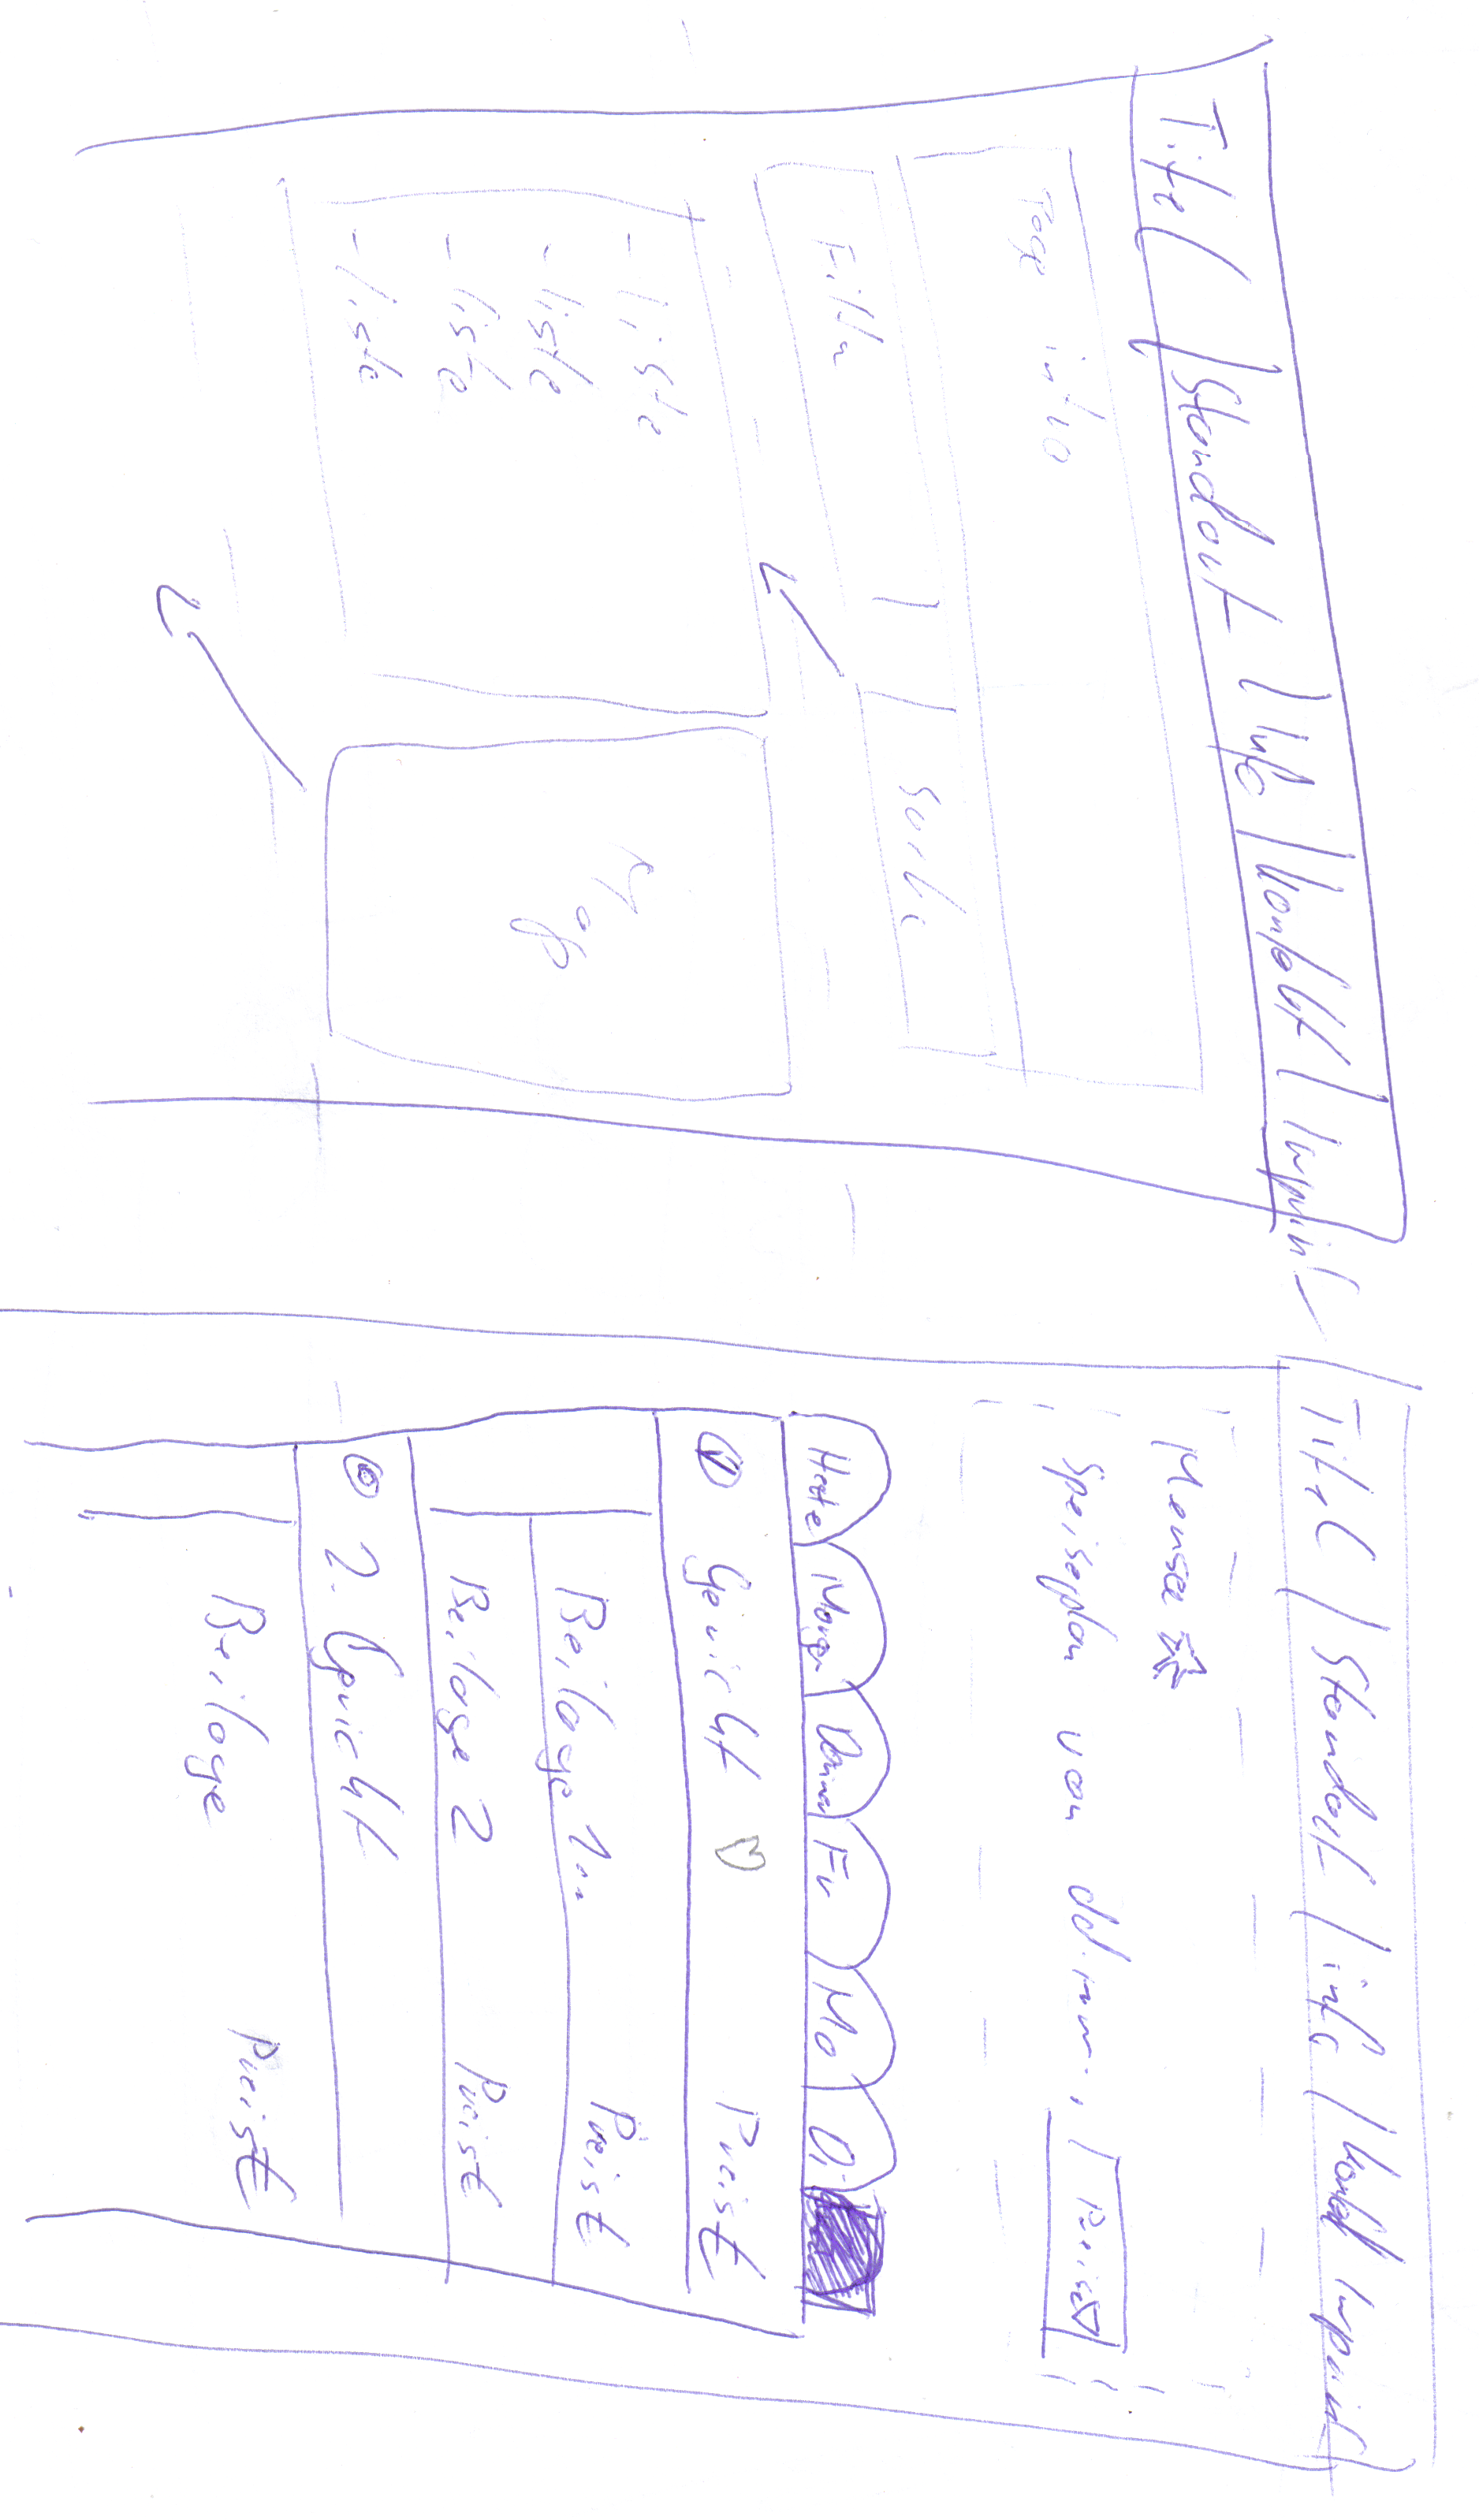 Titel | Standort | Info | Kontakt | Impr
Page intro
Filter
Suche
- Liste
- liste
- liste
- liste
Map
Titel | Standort | info | Kontakt Impri
Mensa
Speiseplan von
Preise
Heute Morgen Fr Mo Di
1 Gericht Preise
Beilage 1 Preise
Beilage 2 Preise
2. Gericht
Beilage Preise